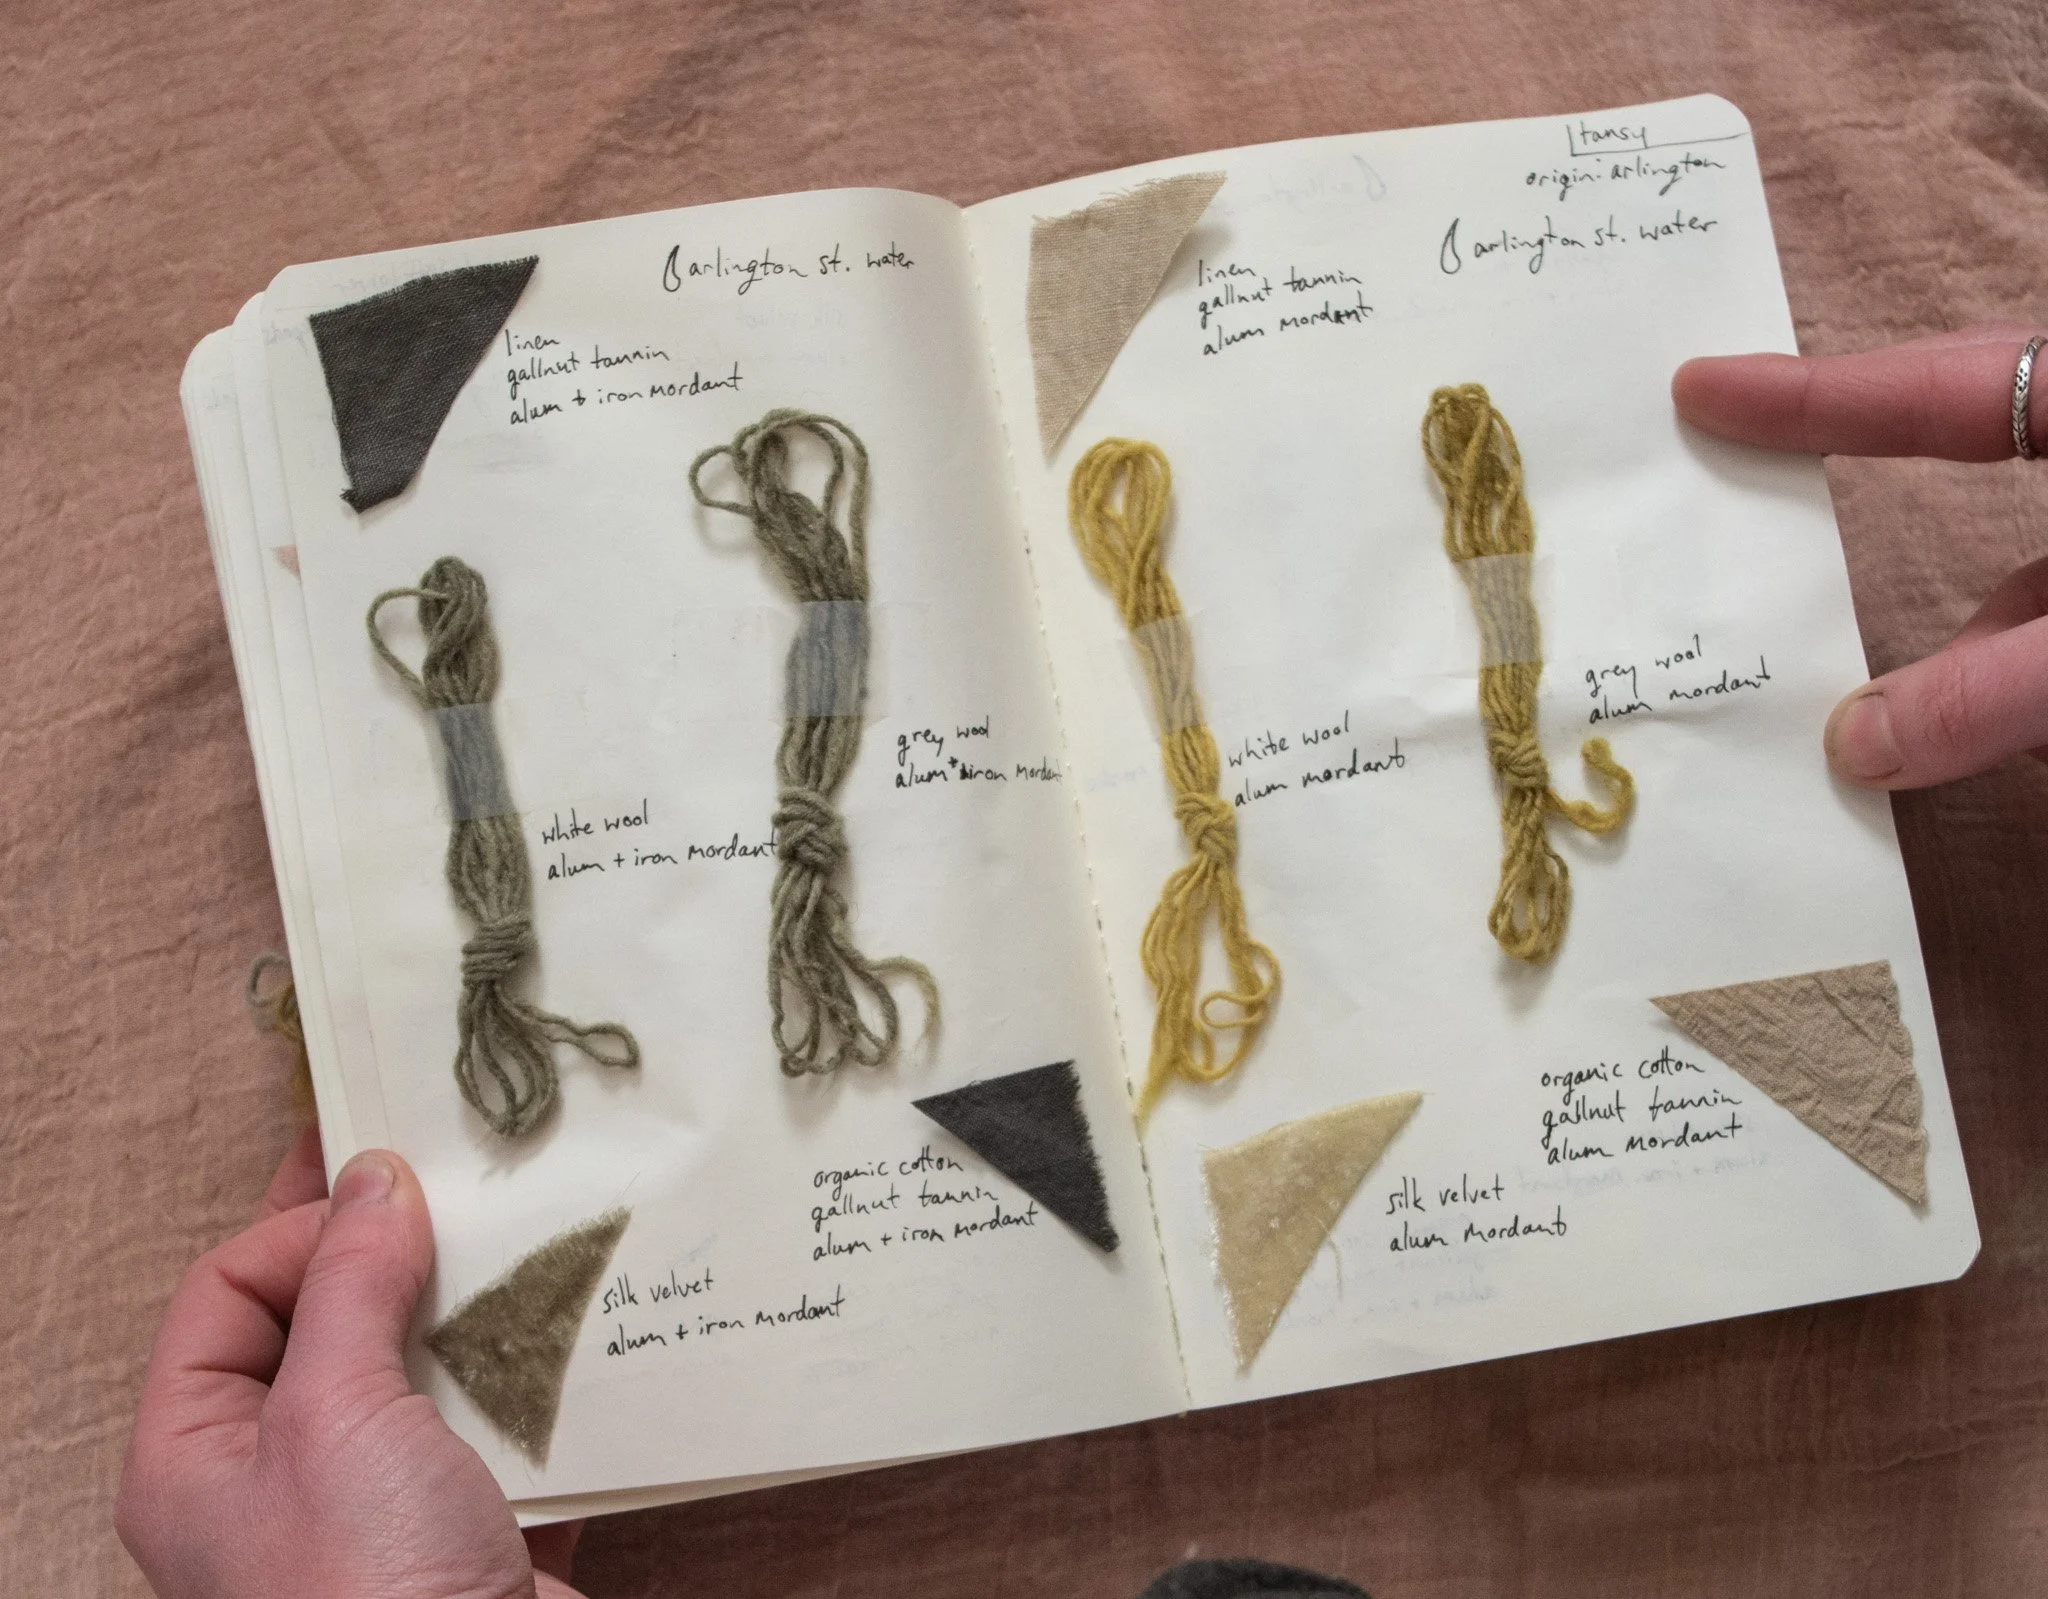 arlington st. water
linen
gallnut tannin
alum + iron mordant
grey wool
alum + iron mordant
white wool
alum + iron mordant
organic cotton
gallnut tannin
alum + iron mordant
silk velvet
alum + iron mordant
tansy
origin: arlington
arlington st. water
linen
gallnut tannin
alum mordant
grey wool
alum mordant
white wool
alum mordant
organic cotton
gallnut tannin
alum mordant
silk velvet
alum mordant